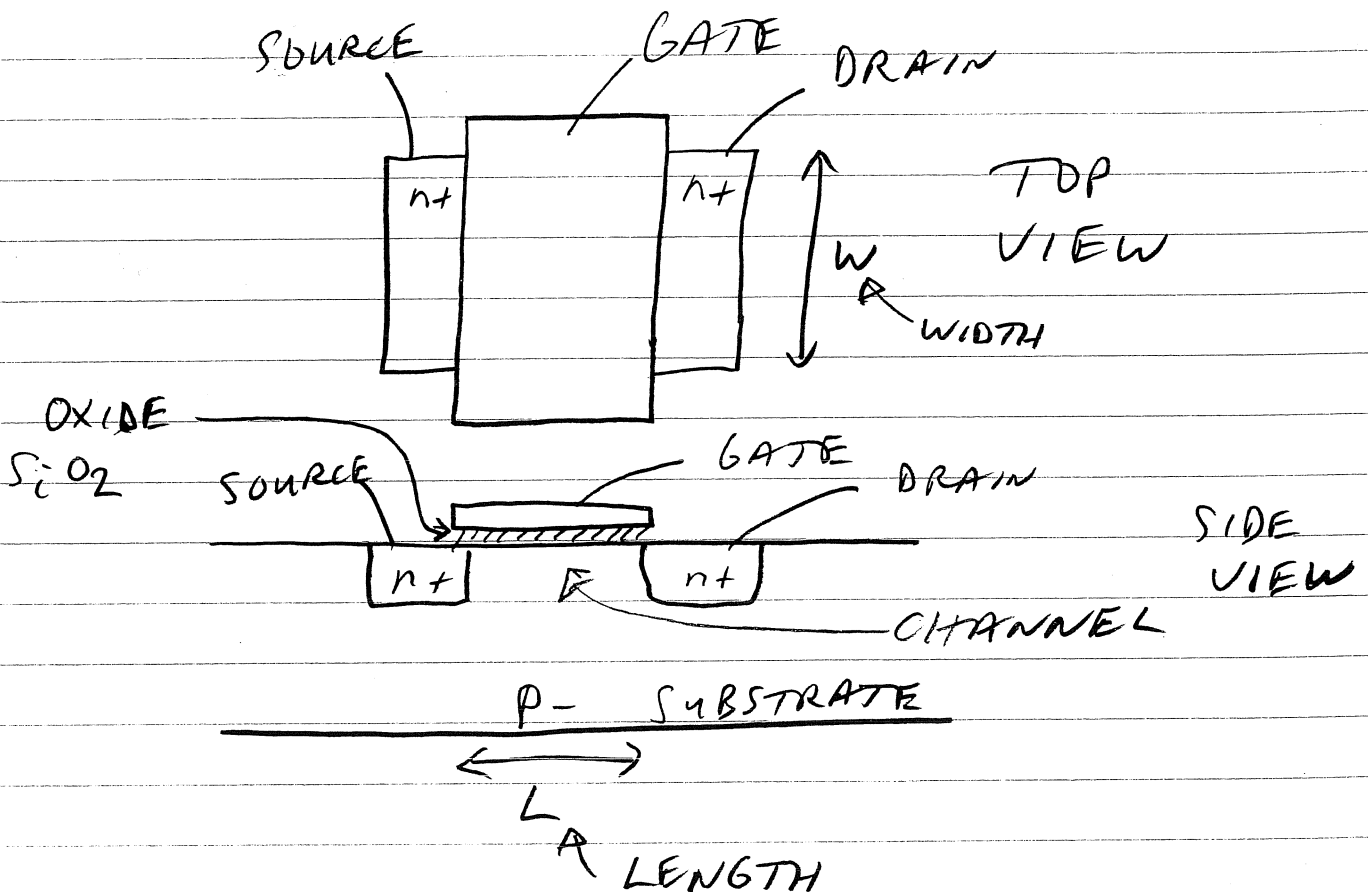 SOURCE
GATE
DRAIN
n+
n+
TOP
VIEW
W
WIDTH
OXIDE
SiO2
SOURCE
GATE
DRAIN
n+
n+
SIDE
VIEW
CHANNEL
P- SUBSTRATE
L
LENGTH